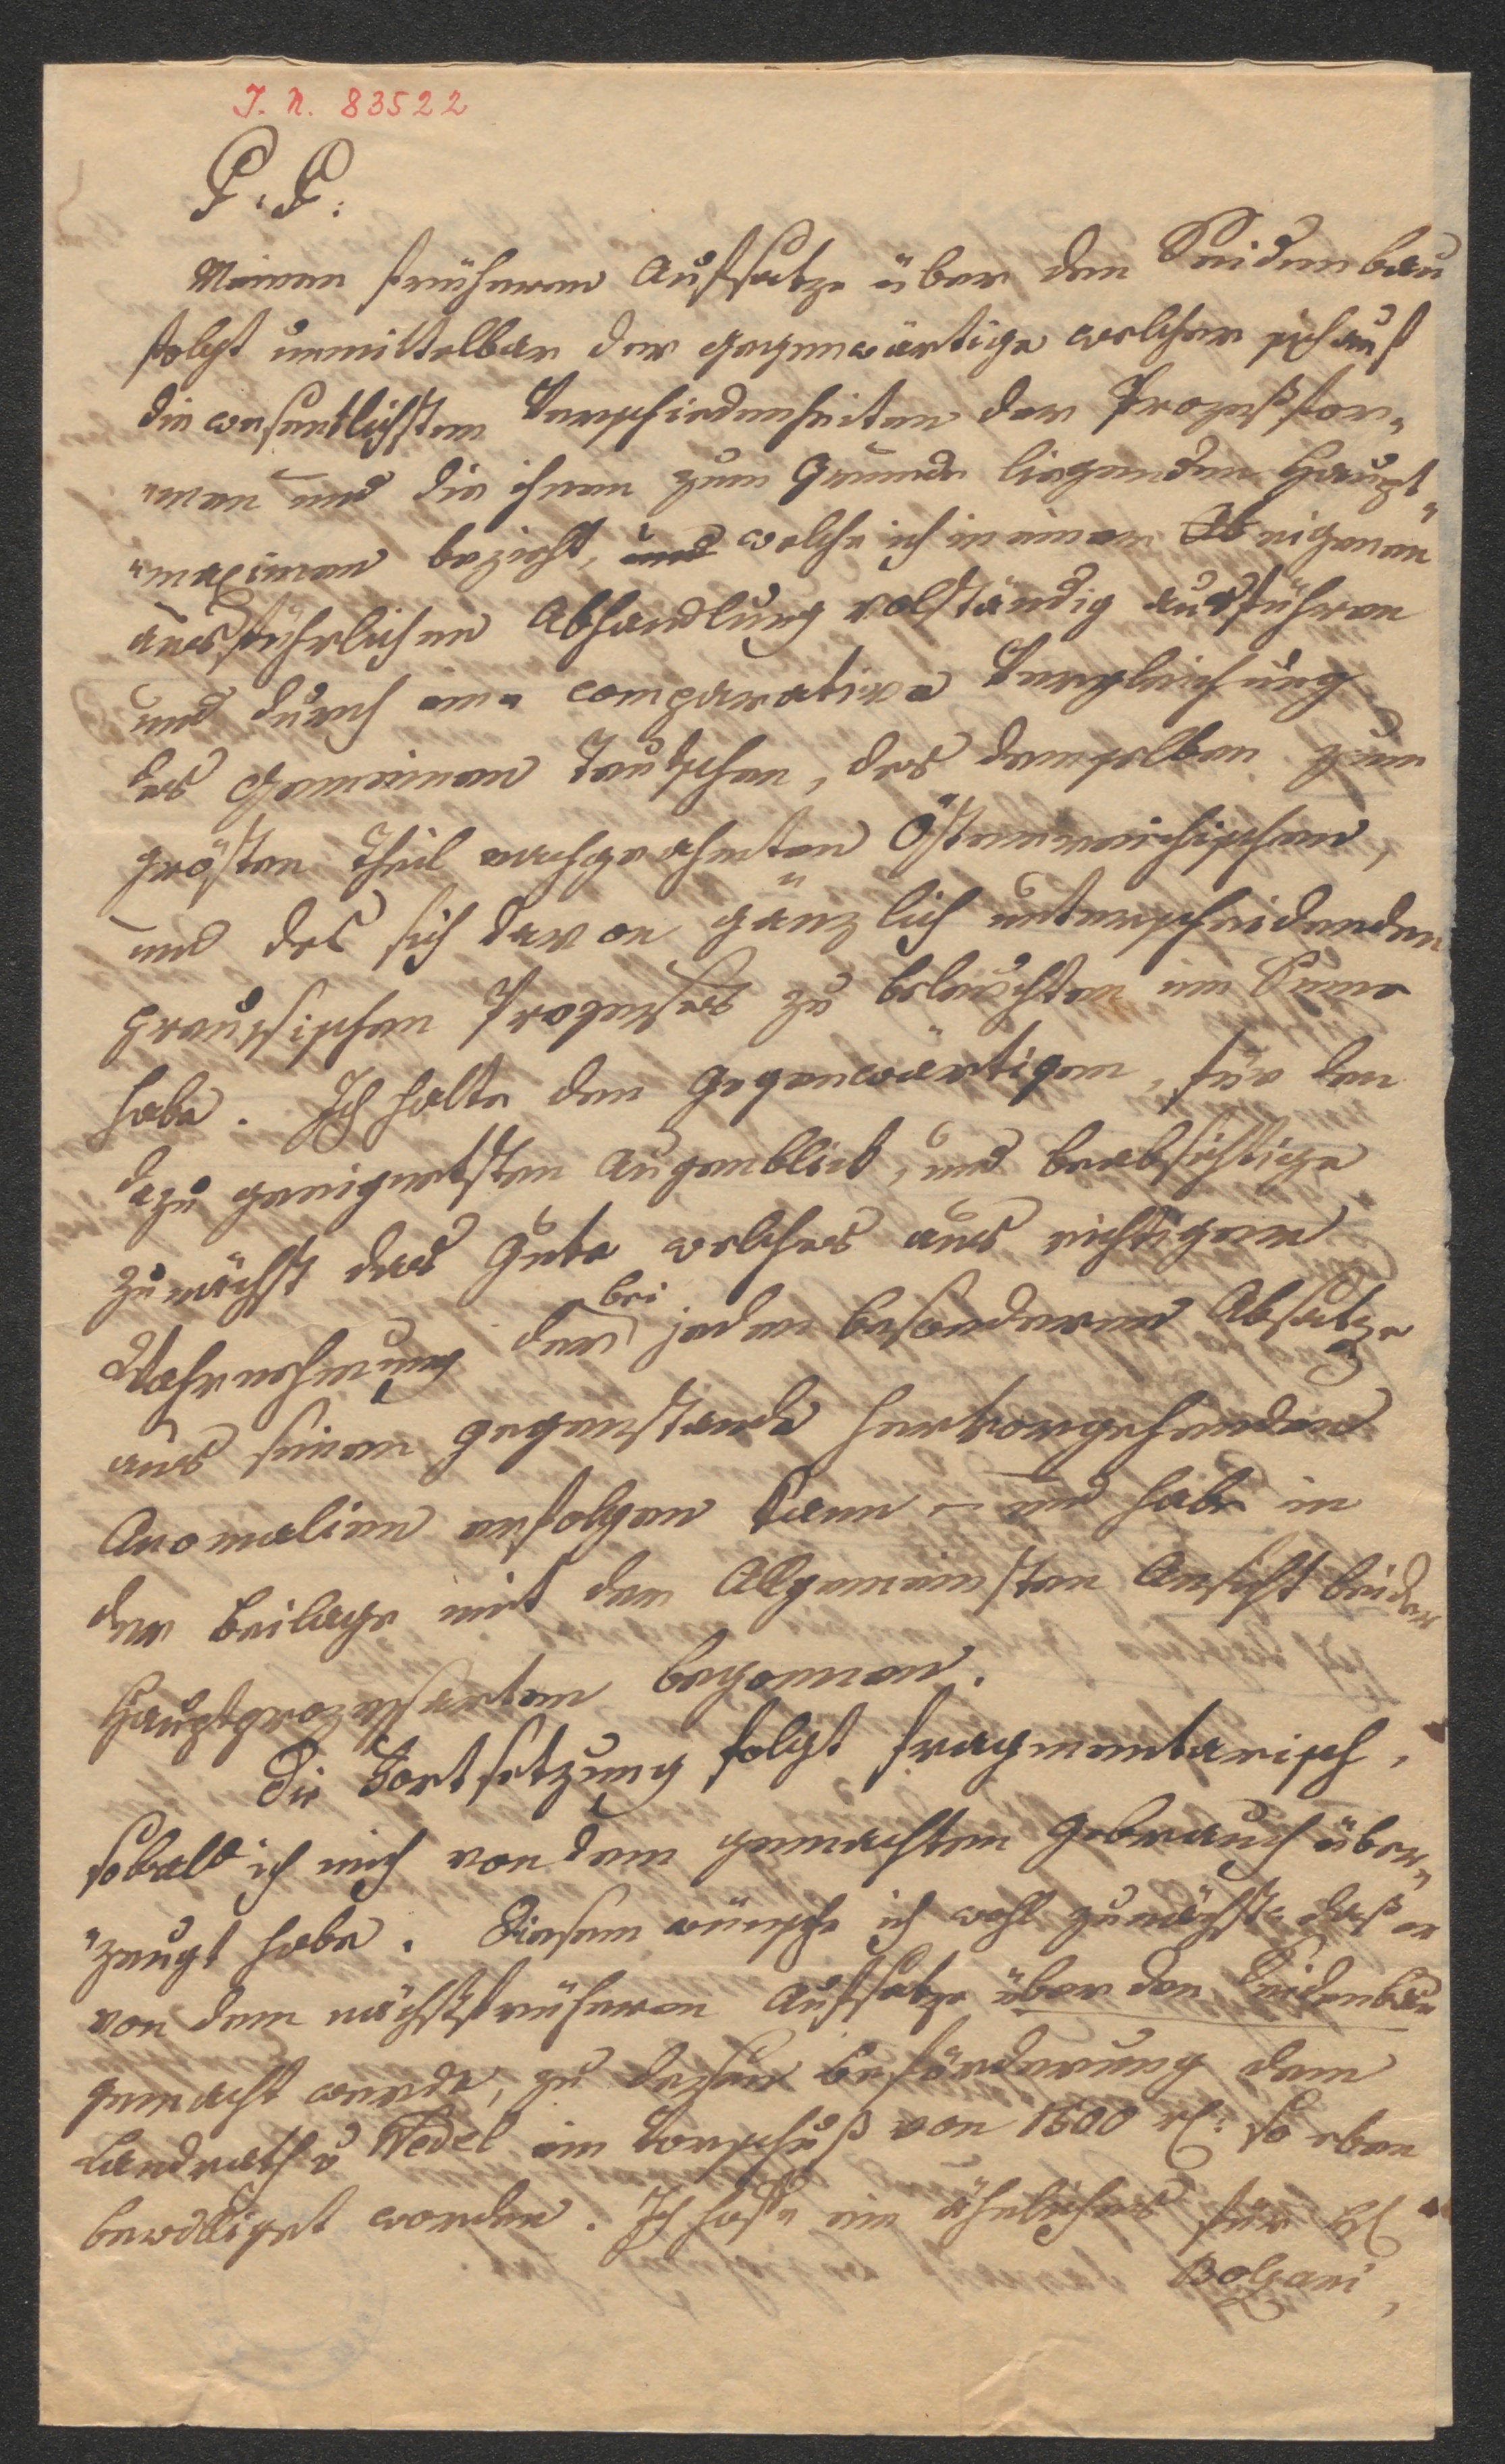 I. N. 83522
P. P.
Meinen früheren Aufsatze über den Seidenbau
folgt unmittelbar der gegenwärtige welcher sich auf
die wesentlichsten Verschiedenheiten der Prozeßfor„
„men und die ihnen zum Grunde liegenden Haupt„
„maximen bezieht, und welche ich in einer eigenen
ausführlichen Abhandlung vollständig ausführen
und durch eine comparative Vergleichung
des Gemeinen Teutschen, des demselben zum
größten Theil nachgeahmten Österreichischen,
und des sich davon gänzlich unterscheidenden
preussischen Prozesses zu beleuchten im Sinne
habe. Ich halte den Gegenwärtigen, für den
dazu geeignetsten Augenblick, und beabsichtige
zunächst das Gute welches aus richtigem
Wahrnehmung der bei jedem besonderen Absatze
aus seinem Gegenstande hervorgehenden
Anomalien erfolgen kann – und habe in
der Beilage mit der Allgemeinsten Ansicht beider
Hauptprozessarten begonnen.
Die Fortsetzung folgt fragmentarisch,
sobald ich mich von dem gemachten Gebrauch über„
„zeugt habe. Diesem wünsche ich wohl zunächst daß er
von dem nächstfrüheren Aufsatze über den Seidenbau
gemacht werde, zu dessen Beförderung dem
Landrath v Wedel ein Vorschuß von 1600 rl: so eben
bewilliget worden. Ich hoffe ein ähnliches für H
Bolzani,